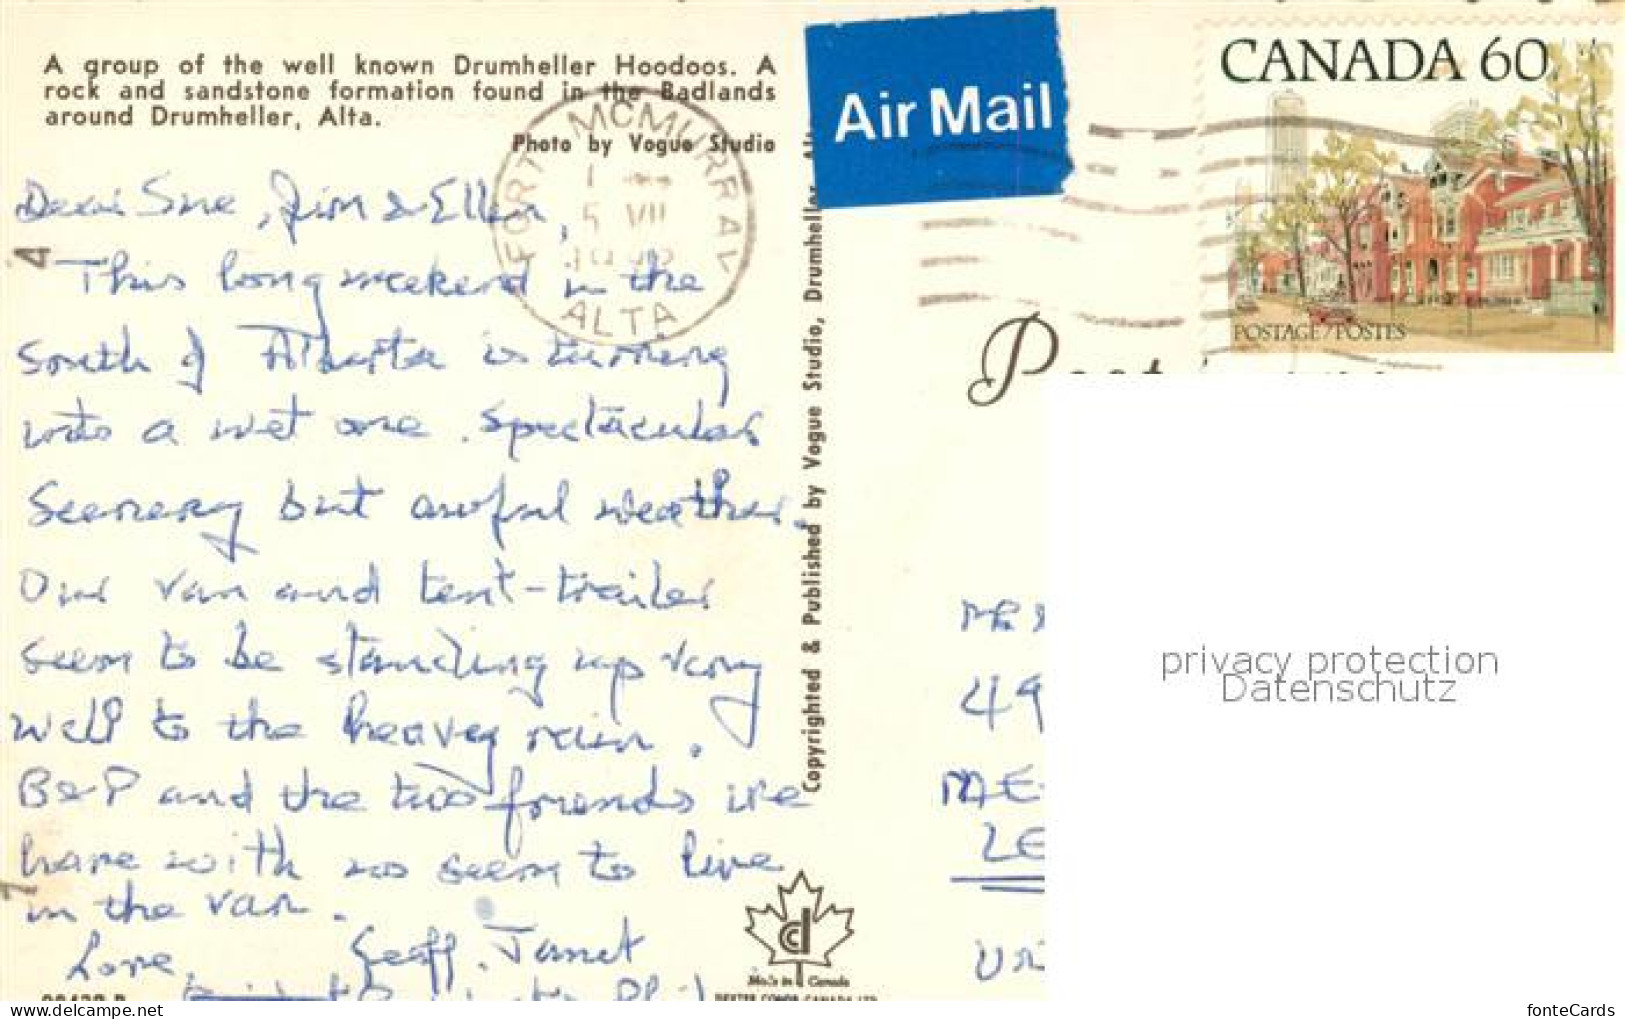 A group of the well known Drumheller Hoodoos. A
rock and sandstone formation found in the Badlands
around Drumheller, Alta.
Photo by Vogue Studio
Dear Sue, Jim & Ellen,
This long weekend in the
south of Alberta is turning
into a wet one. Spectacular
Scenery but awful weather.
Our van and tent-trailer
seem to be standing up very
well to the heavy rain.
B&P and the two friends we
have with us seem to live
in the van.
Love,
Geoff, Janet
FORT MCMURRAY
ALTA
5 VII
Copyrighted & Published by Vogue Studio, Drumheller, Alta.
Made in Canada
DEXTER COLOR CANADA LTD
Air Mail
CANADA 60
POSTAGE/POSTES
Post
MR
49
ME
LE
privacy protection
Datenschutz
fonteCards